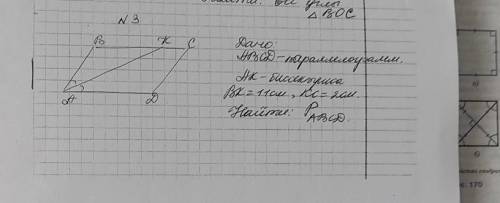 Найти: Все углы
△ BOC
N 3
B K C
A D
Дано
ABCD - параллелограмм.
AK - биссектриса
BK = 11 см., KC = 2 см.
Найти: P
ABCD.
а)
б)
с. 170